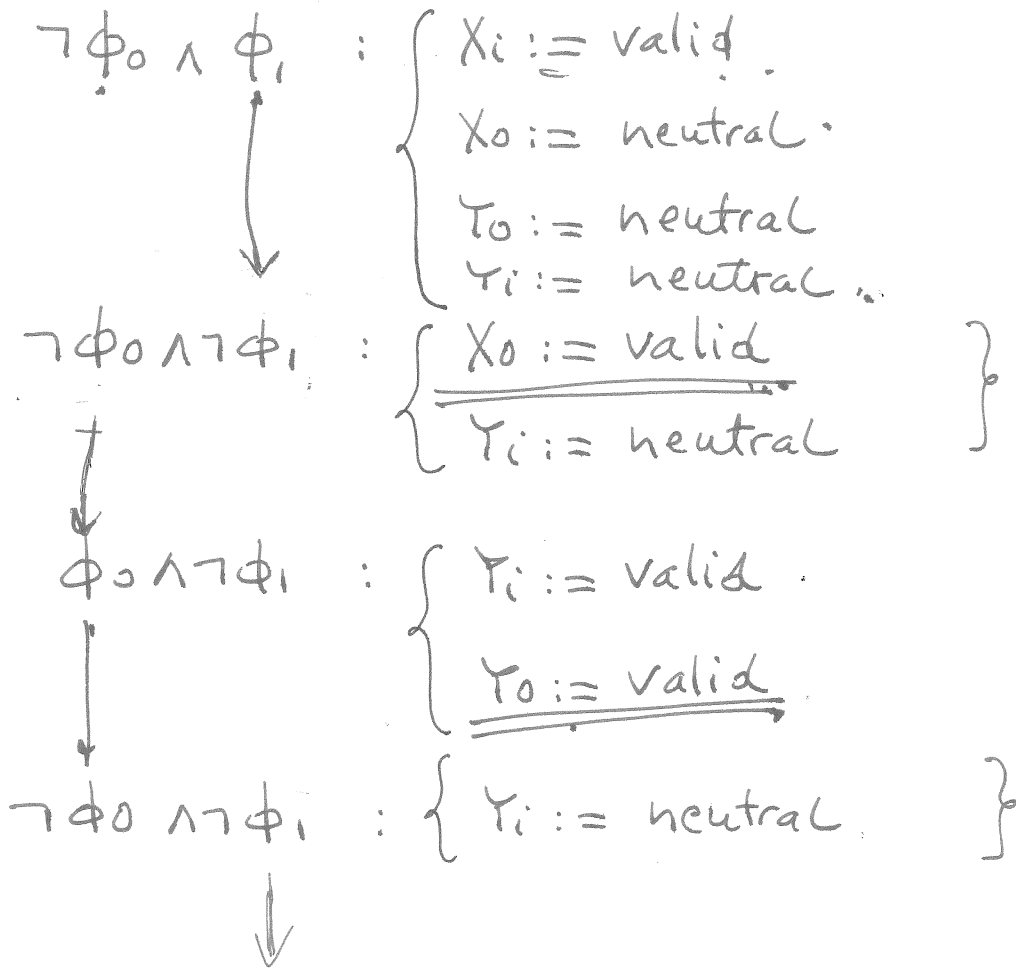 ¬ϕ0 ∧ ϕ1 : { Xi := valid
X0 := neutral
Y0 := neutral
Yi := neutral
¬ϕ0 ∧ ¬ϕ1 : { X0 := valid }
Yi := neutral
ϕ0 ∧ ¬ϕ1 : { Yi := valid
Y0 := valid
¬ϕ0 ∧ ¬ϕ1 : { Yi := neutral }